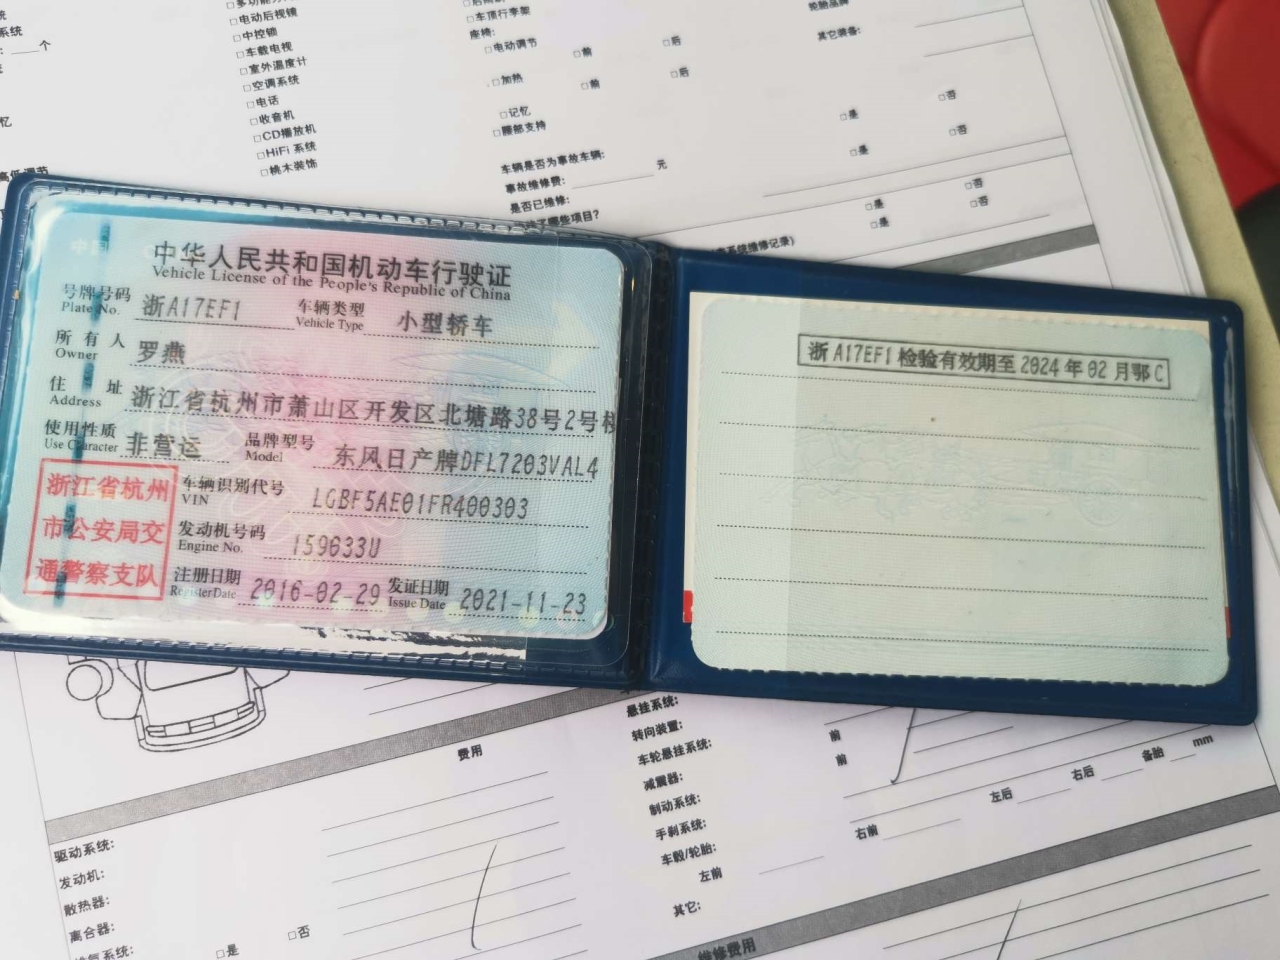 系统
个
多功能方
□电动后视镜
□中控锁
□车载电视
□室外温度计
□空调系统
□电话
□收音机
□CD播放机
□HiFi 系统
□桃木装饰
□车顶行李架
座椅:
□电动调节 □前 □后
□加热 □前 □后
□记忆
□腰部支持
轮胎品牌
其它装备:
□是 □否
□是 □否
车辆是否为事故车辆:
事故维修费: 元
是否已维修:
□是 □否
□是 □否
中华人民共和国机动车行驶证
Vehicle License of the People's Republic of China
号牌号码 浙A17EF1 车辆类型 小型轿车
Plate No. Vehicle Type
所有人 罗燕
Owner
住址 浙江省杭州市萧山区开发区北塘路38号2号
Address
使用性质 非营运 品牌型号 东风日产牌DFL7203VAL4
Use Character Model
浙江省杭州
市公安局交
通警察支队
车辆识别代号 LGBF5AE01FR400303
VIN
发动机号码 159633U
Engine No.
注册日期 2016-02-29 发证日期 2021-11-23
Register Date Issue Date
浙A17EF1检验有效期至2024年02月鄂C
费用
驱动系统:
发动机:
散热器:
离合器:
□是 □否
悬挂系统:
转向装置:
车轮悬挂系统:
减震器:
制动系统:
手刹系统:
车毂/轮胎:
左前 右前 左后 右后 备胎 mm
其它:
前
前
维修费用